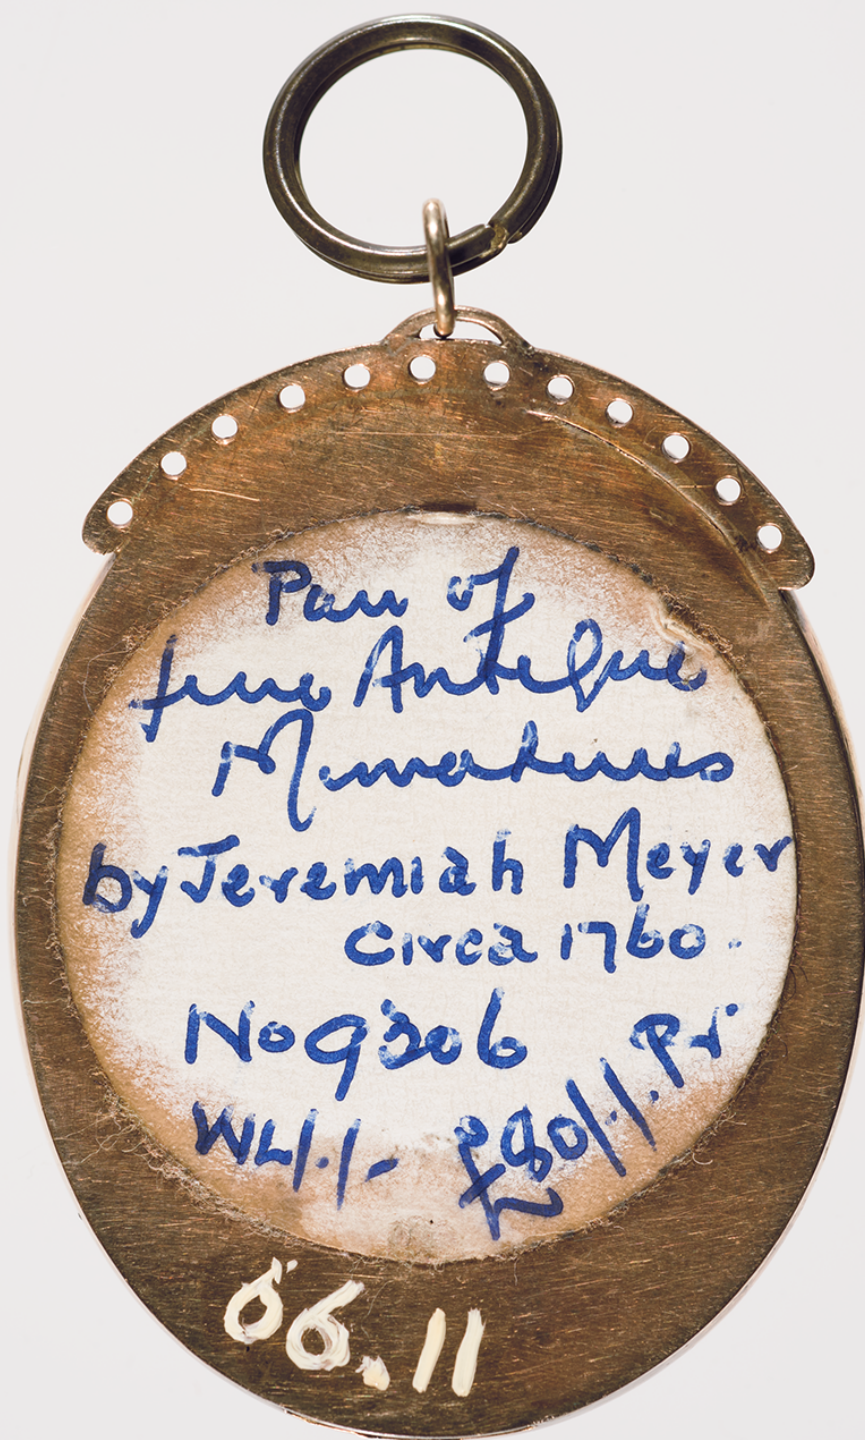 Pair of
fine Antique
Miniatures
by Jeremiah Meyer
circa 1760.
No 9306
WL/./- £80/-/. Pr
66.11